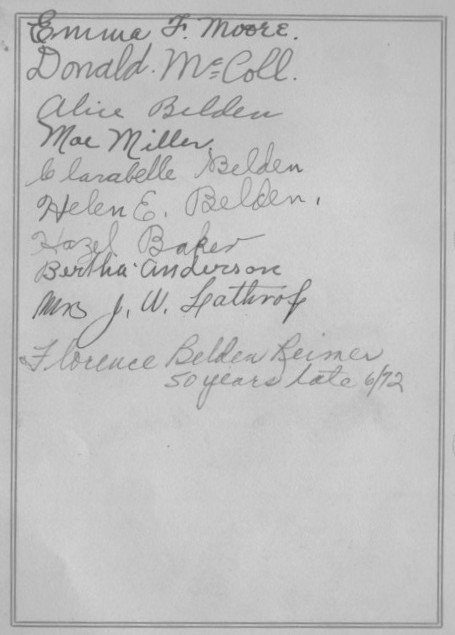 Emma F. Moore.
Donald. McColl.
Alice Belden
Mae Miller.
Clarabelle Belden
Helen E. Belden.
Hazel Baker
Bertha Anderson
Mrs J. W. Lathrop
Florence Belden Reimer
50 years late 6/72